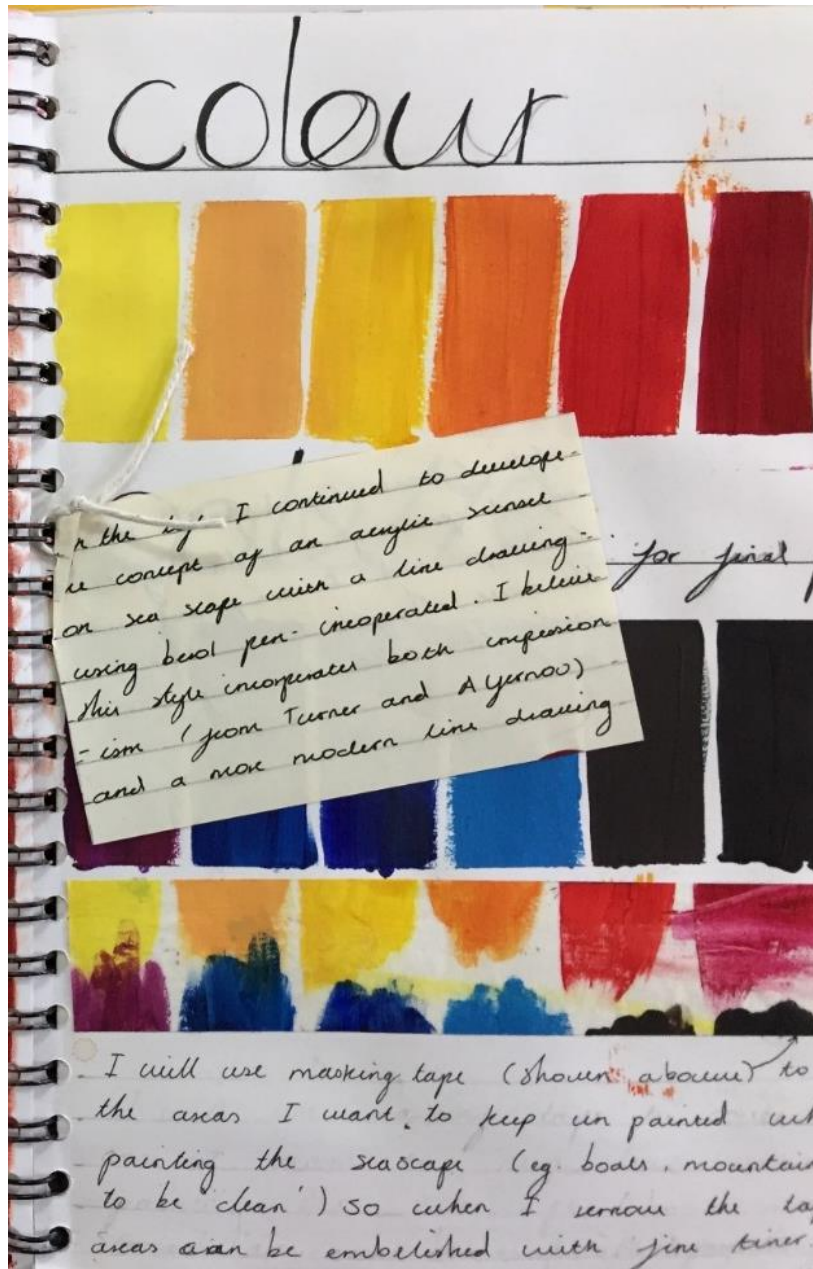 colour
n the I continued to develope
concept of an acrylic sunset
on sea scape with a line drawing -
using berol pen - incoperated. I believe
this style incorperates both impression
- ism (from Turner and A Yernov)
and a more modern line drawing
for final
I will use masking tape (shown above) to
the areas I want to keep un painted
painting the seascape (eg. boats, mountain
to be 'clean') so when I remove the
areas can be embelished with fine liner.